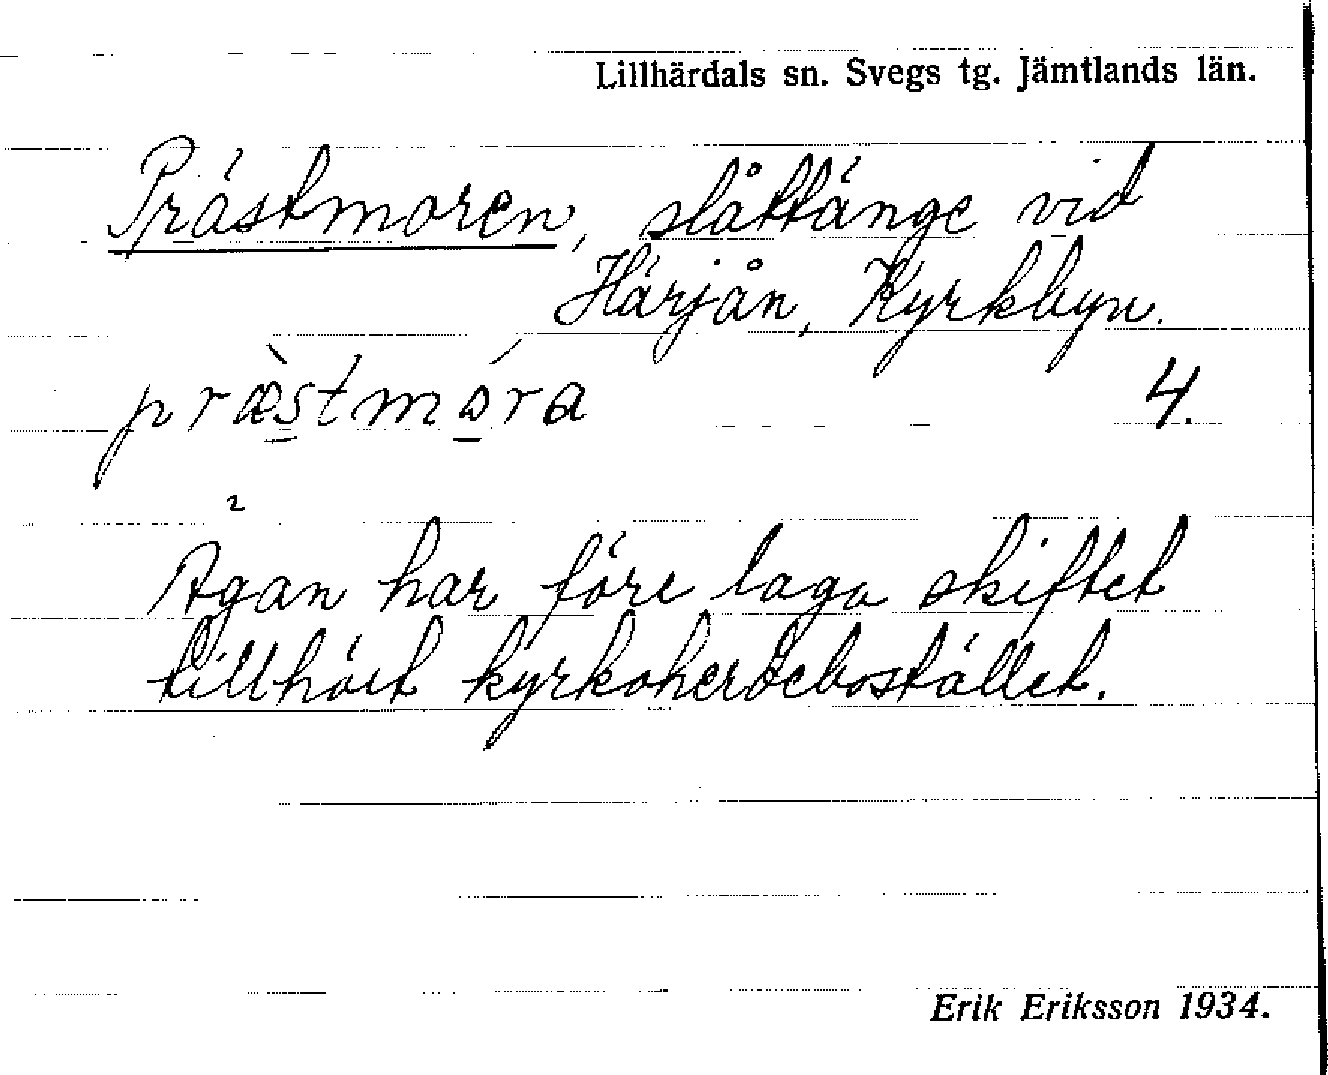 Lillhärdals sn. Svegs tg. Jämtlands län.
Prästmoren, slåttänge vid
Härjån, Kyrkbyn.
præ̀stmóra 4.
Ägan har före laga skiftet
tillhört kyrkoherdebostället.
Erik Eriksson 1934.